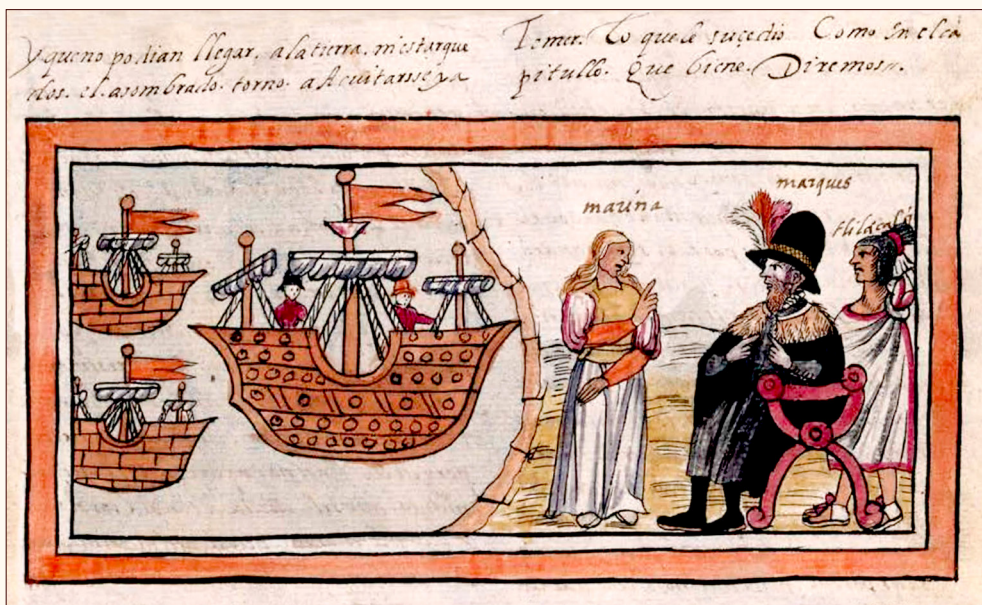 y que no podian llegar, a la tierra, ni estar que
dos. el asombrado. torno. a
Temer. Lo que le suçedio Como en el ca
pitullo. que biene. Diremos.
marina
marques